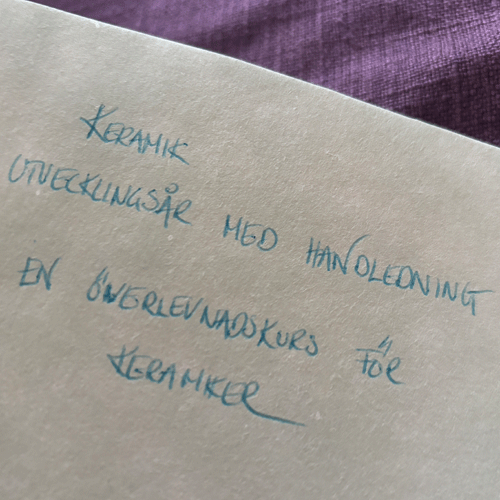 KERAMIK
UTVECKLINGSÅR MED HANDLEDNING
EN ÖVERLEVNADSKURS FÖR
KERAMIKER